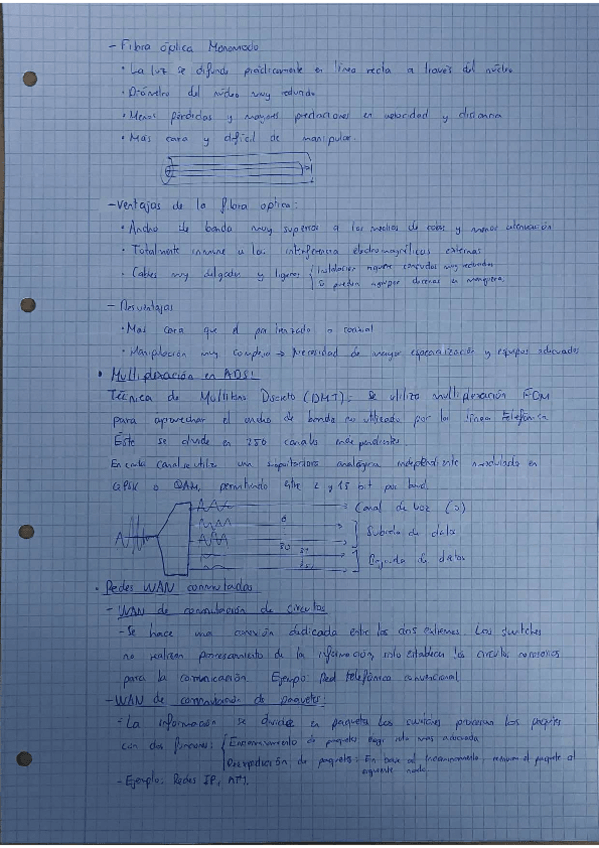 - Fibra óptica Monomodo
· La luz se difunde prácticamente en línea recta a través del núcleo
· Diámetro del núcleo muy reducido
· Menos pérdidas y mayores prestaciones en velocidad y distancia
· Más cara y difícil de manipular.
- Ventajas de la fibra optica:
· Ancho de banda muy superior a los medios de cobre y menor atenuación
· Totalmente inmune a las interferencia electromagnéticas externas
· Cables muy delgados y ligeros { Instalación requiere conductos muy reducidos
Se pueden agrupar decenas en manguera.
- Desventajas
· Mas cara que el par trenzado o coaxial
· Manipulación muy compleja → Necesidad de mayor especialización y equipos adecuados
· Multiplexación en ADSL:
Técnica de Multitono Discreto (DMT): Se utiliza multiplexación FDM
para aprovechar el ancho de banda no utilizado por la línea telefónica
Éste se divide en 250 canales independientes.
En cada canal se utiliza un portadora analógica independiente modulada en
QPSK o QAM, permitiendo entre 2 y 15 bit por baud.
Canal de voz (0)
Subida de datos
30 31
Bajada de datos
· Redes WAN conmutadas
- WAN de conmutación de circuitos
- Se hace una conexión dedicada entre los dos extremos. Los switches
no realizan procesamiento de la información, solo establecen los circuitos necesarios
para la comunicación. Ejemplo: Red telefónica convencional
- WAN de conmutación de paquetes:
- La información se divide en paquetes Los switches procesan los paquetes
con dos funciones: { Encaminamiento de paquetes: ruta mas adecuada
Retransmisión de paquetes: En base al encaminamiento reenvían el paquete al
siguiente nodo
- Ejemplo: Redes IP, ATM.